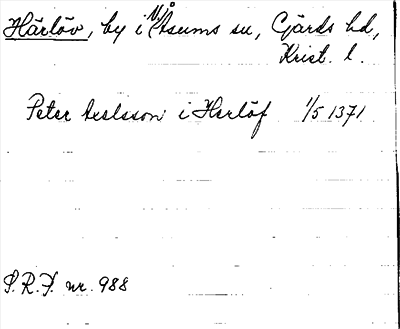 Härlöv, by i N/Åsums sn, Gärds hd,
Krist. l.
Peter Axelsson i Herlöf 1/5 1371
S.R.P. nr. 988